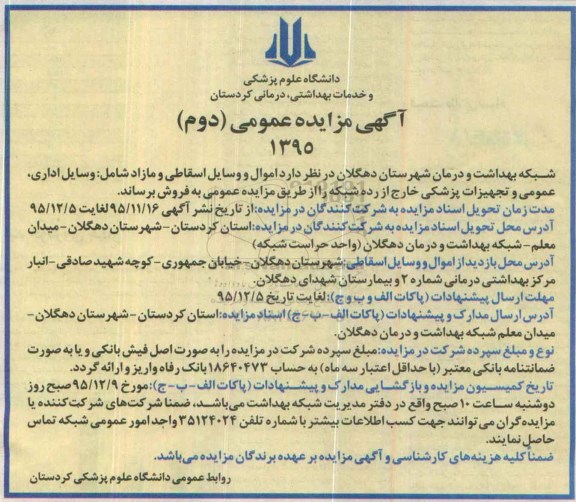 دانشگاه علوم پزشکی
و خدمات بهداشتی، درمانی کردستان
آگهی مزایده عمومی (دوم)
۱۳۹۵
شبکه بهداشت و درمان شهرستان دهگلان در نظر دارد اموال و وسایل اسقاطی و مازاد شامل: وسایل اداری،
عمومی و تجهیزات پزشکی خارج از رده شبکه را از طریق مزایده عمومی به فروش برساند.
مدت زمان تحویل اسناد مزایده به شرکت‌کنندگان در مزایده: از تاریخ نشر آگهی ۹۵/۱۱/۱۶ لغایت ۹۵/۱۲/۵
آدرس محل تحویل اسناد مزایده به شرکت‌کنندگان در مزایده: استان کردستان - شهرستان دهگلان - میدان
معلم - شبکه بهداشت و درمان دهگلان (واحد حراست شبکه)
آدرس محل بازدید از اموال و وسایل اسقاطی: شهرستان دهگلان - خیابان جمهوری - کوچه شهید صادقی - انبار
مرکز بهداشتی درمانی شماره ۲ و بیمارستان شهدای دهگلان.
مهلت ارسال پیشنهادات (پاکات الف و ب و ج): لغایت تاریخ ۹۵/۱۲/۵
آدرس ارسال مدارک و پیشنهادات (پاکات الف - ب - ج) اسناد مزایده: استان کردستان - شهرستان دهگلان -
میدان معلم شبکه بهداشت و درمان دهگلان.
نوع و مبلغ سپرده شرکت در مزایده: مبلغ سپرده شرکت در مزایده را به صورت اصل فیش بانکی و یا به صورت
ضمانتنامه بانکی معتبر (با حداقل اعتبار سه ماه) به حساب ۱۸۶۴۰۴۷۳ بانک رفاه واریز و ارائه گردد.
تاریخ کمیسیون مزایده و بازگشایی مدارک و پیشنهادات (پاکات الف - ب - ج): مورخ ۹۵/۱۲/۹ صبح روز
دوشنبه ساعت ۱۰ صبح واقع در دفتر مدیریت شبکه بهداشت می‌باشد، ضمنا شرکت‌های شرکت‌کننده یا
مزایده‌گران می‌توانند جهت کسب اطلاعات بیشتر با شماره تلفن ۳۵۱۲۴۰۲۴ واحد امور عمومی شبکه تماس
حاصل نمایند.
ضمناً کلیه هزینه‌های کارشناسی و آگهی مزایده بر عهده برندگان مزایده می‌باشد.
روابط عمومی دانشگاه علوم پزشکی کردستان